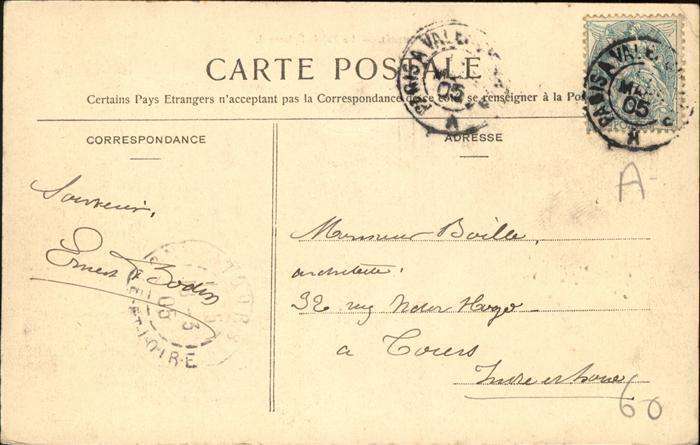 CARTE POSTALE
Certains Pays Etrangers n'acceptent pas la Correspondance se renseigner à la Po
CORRESPONDANCE
ADRESSE
Souvenir,
Ernest Bodin
Monsieur Boille,
architecte.
32 rue Victor Hugo
à Tours
Indre et Loire
PARIS A VALE
05
PARIS A VALE
05
A
TOURS
05
ET-LOIRE
60